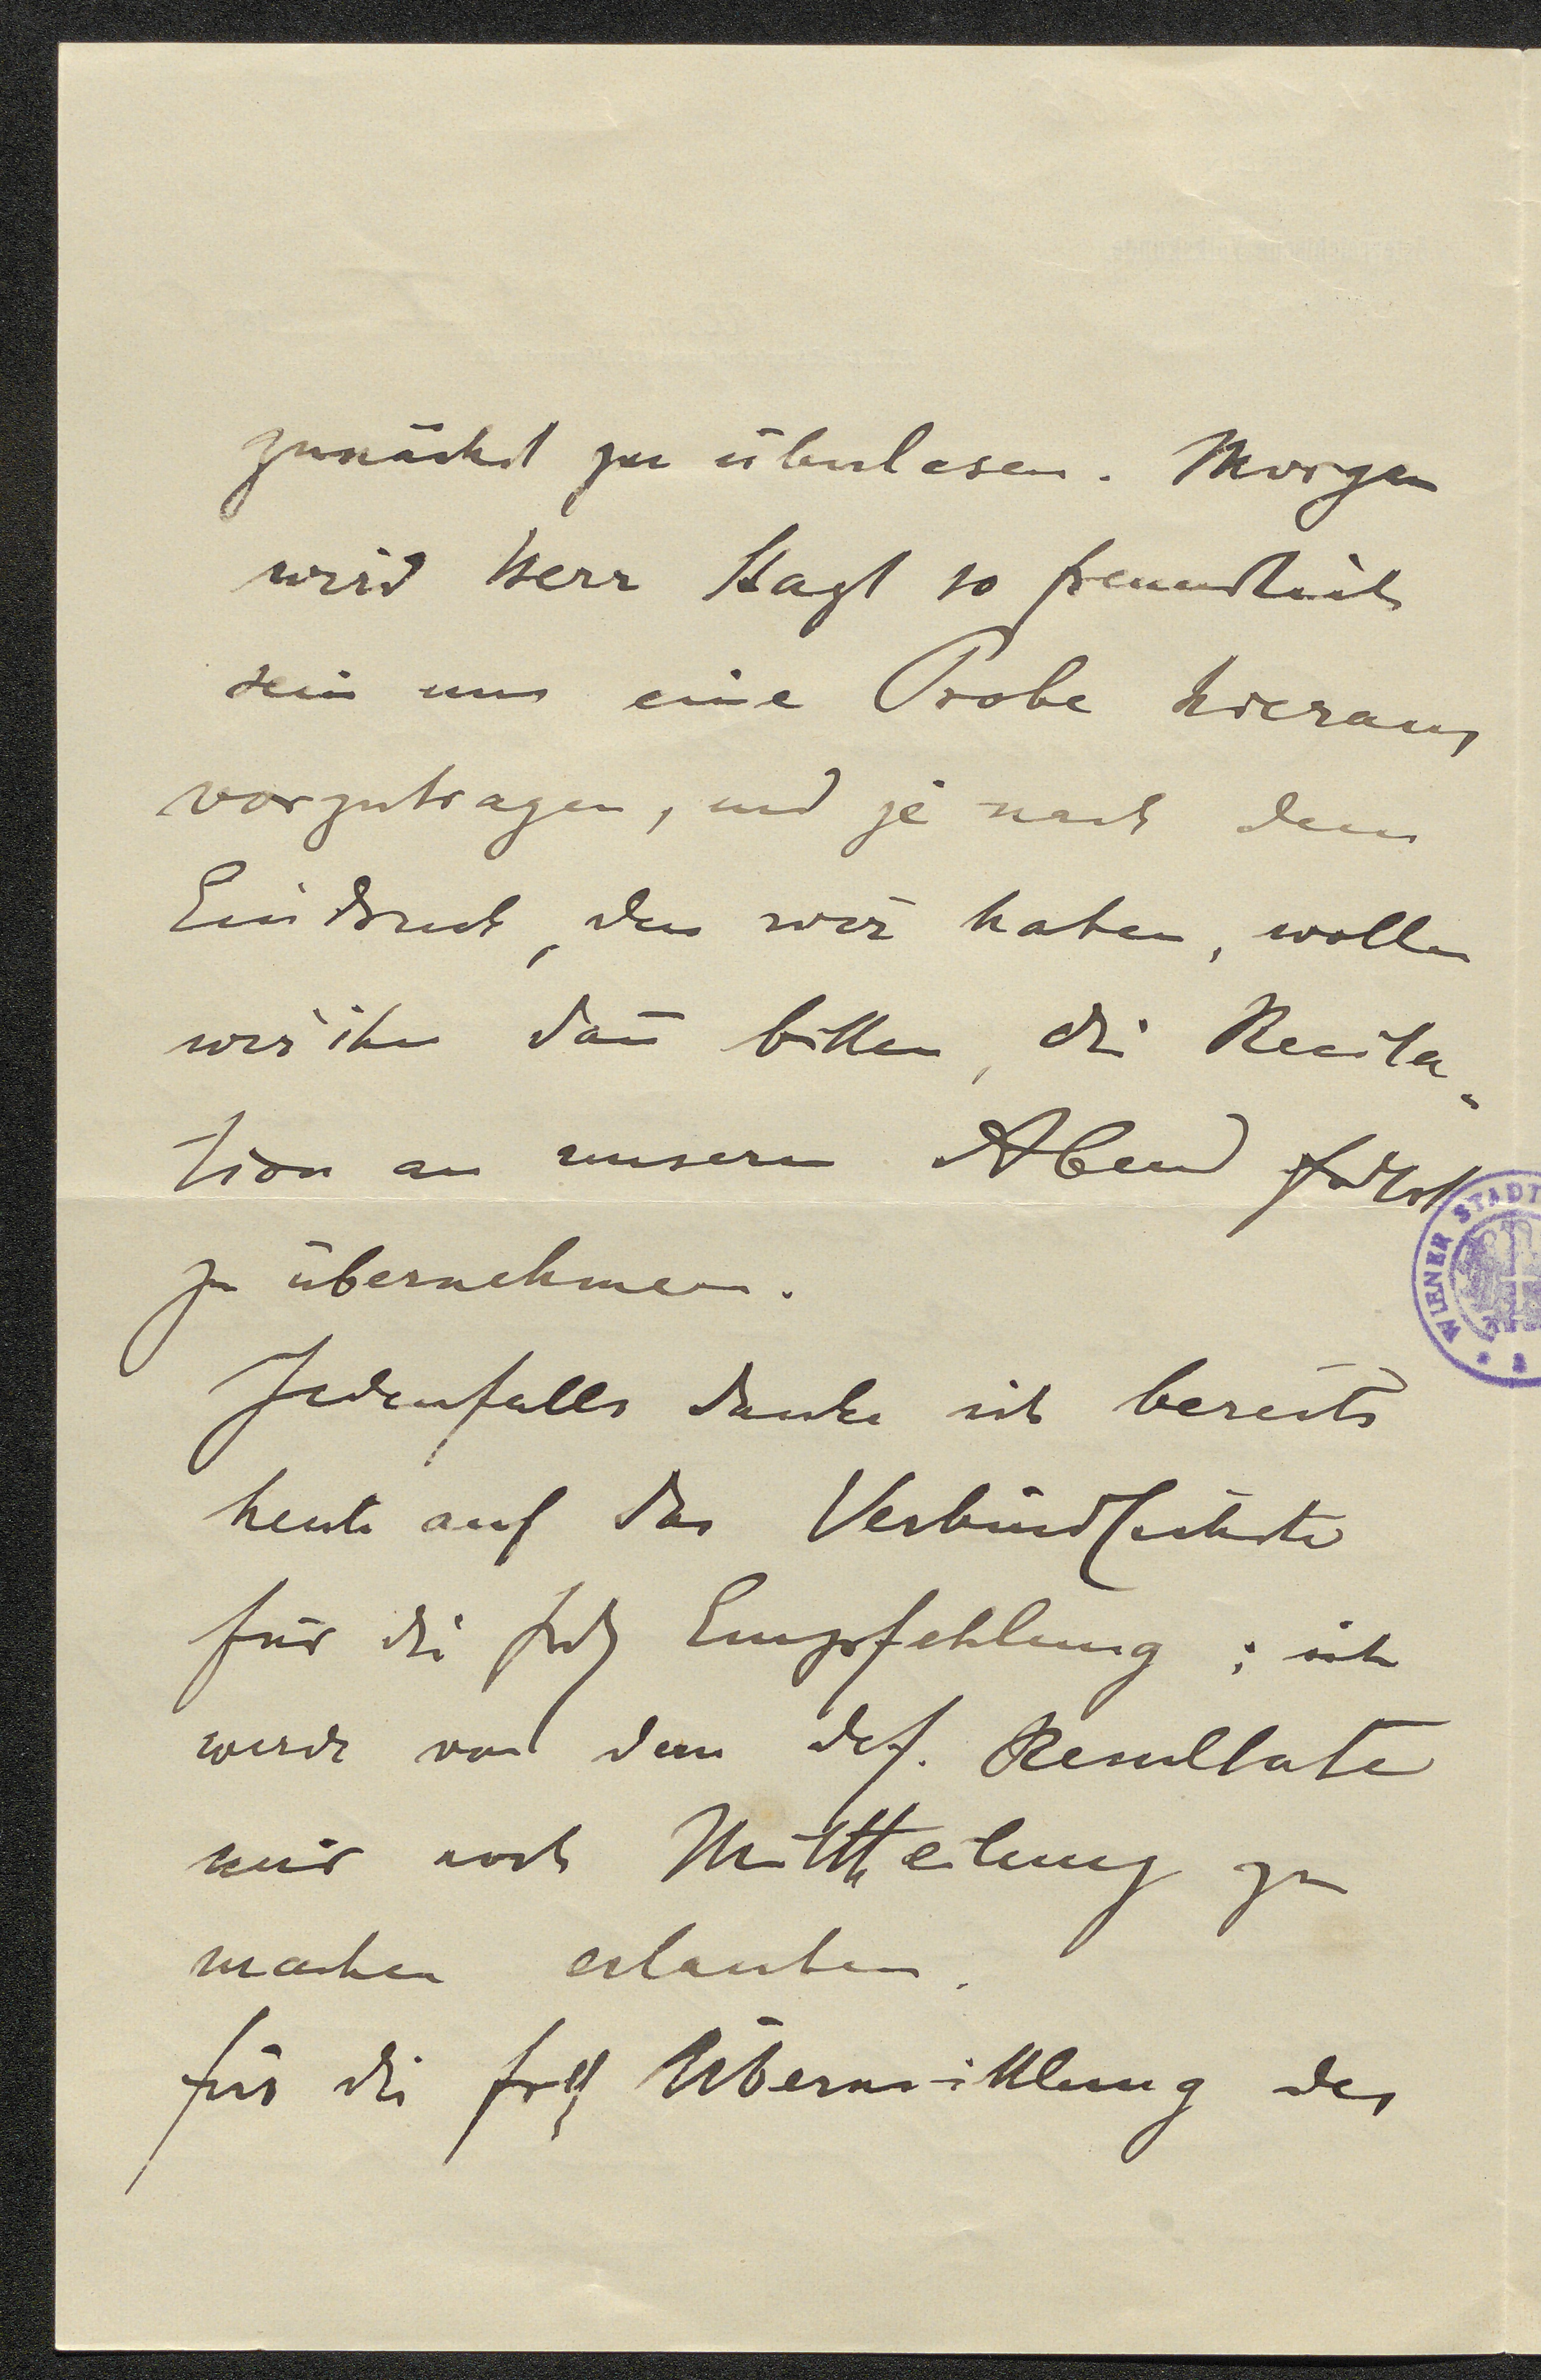 zunächst zu überlesen. Morgen
wird Herr Hagl so freundlich
sein uns eine Probe hieraus
vorzutragen, und je nach dem
Eindruck, den wir haben, wollen
wir ihn dañ bitten, die Recita-
tion an unserem Abend
zu übernehmen.
Jedenfalls danke ich bereits
heute auf das Verbindlichste
für die frdl Empfehlung; ich
werde von dem def. Resultate
mir noch Mittheilung zu
machen erlauben.
für die frdl Übermittlung des
WIENER STADT